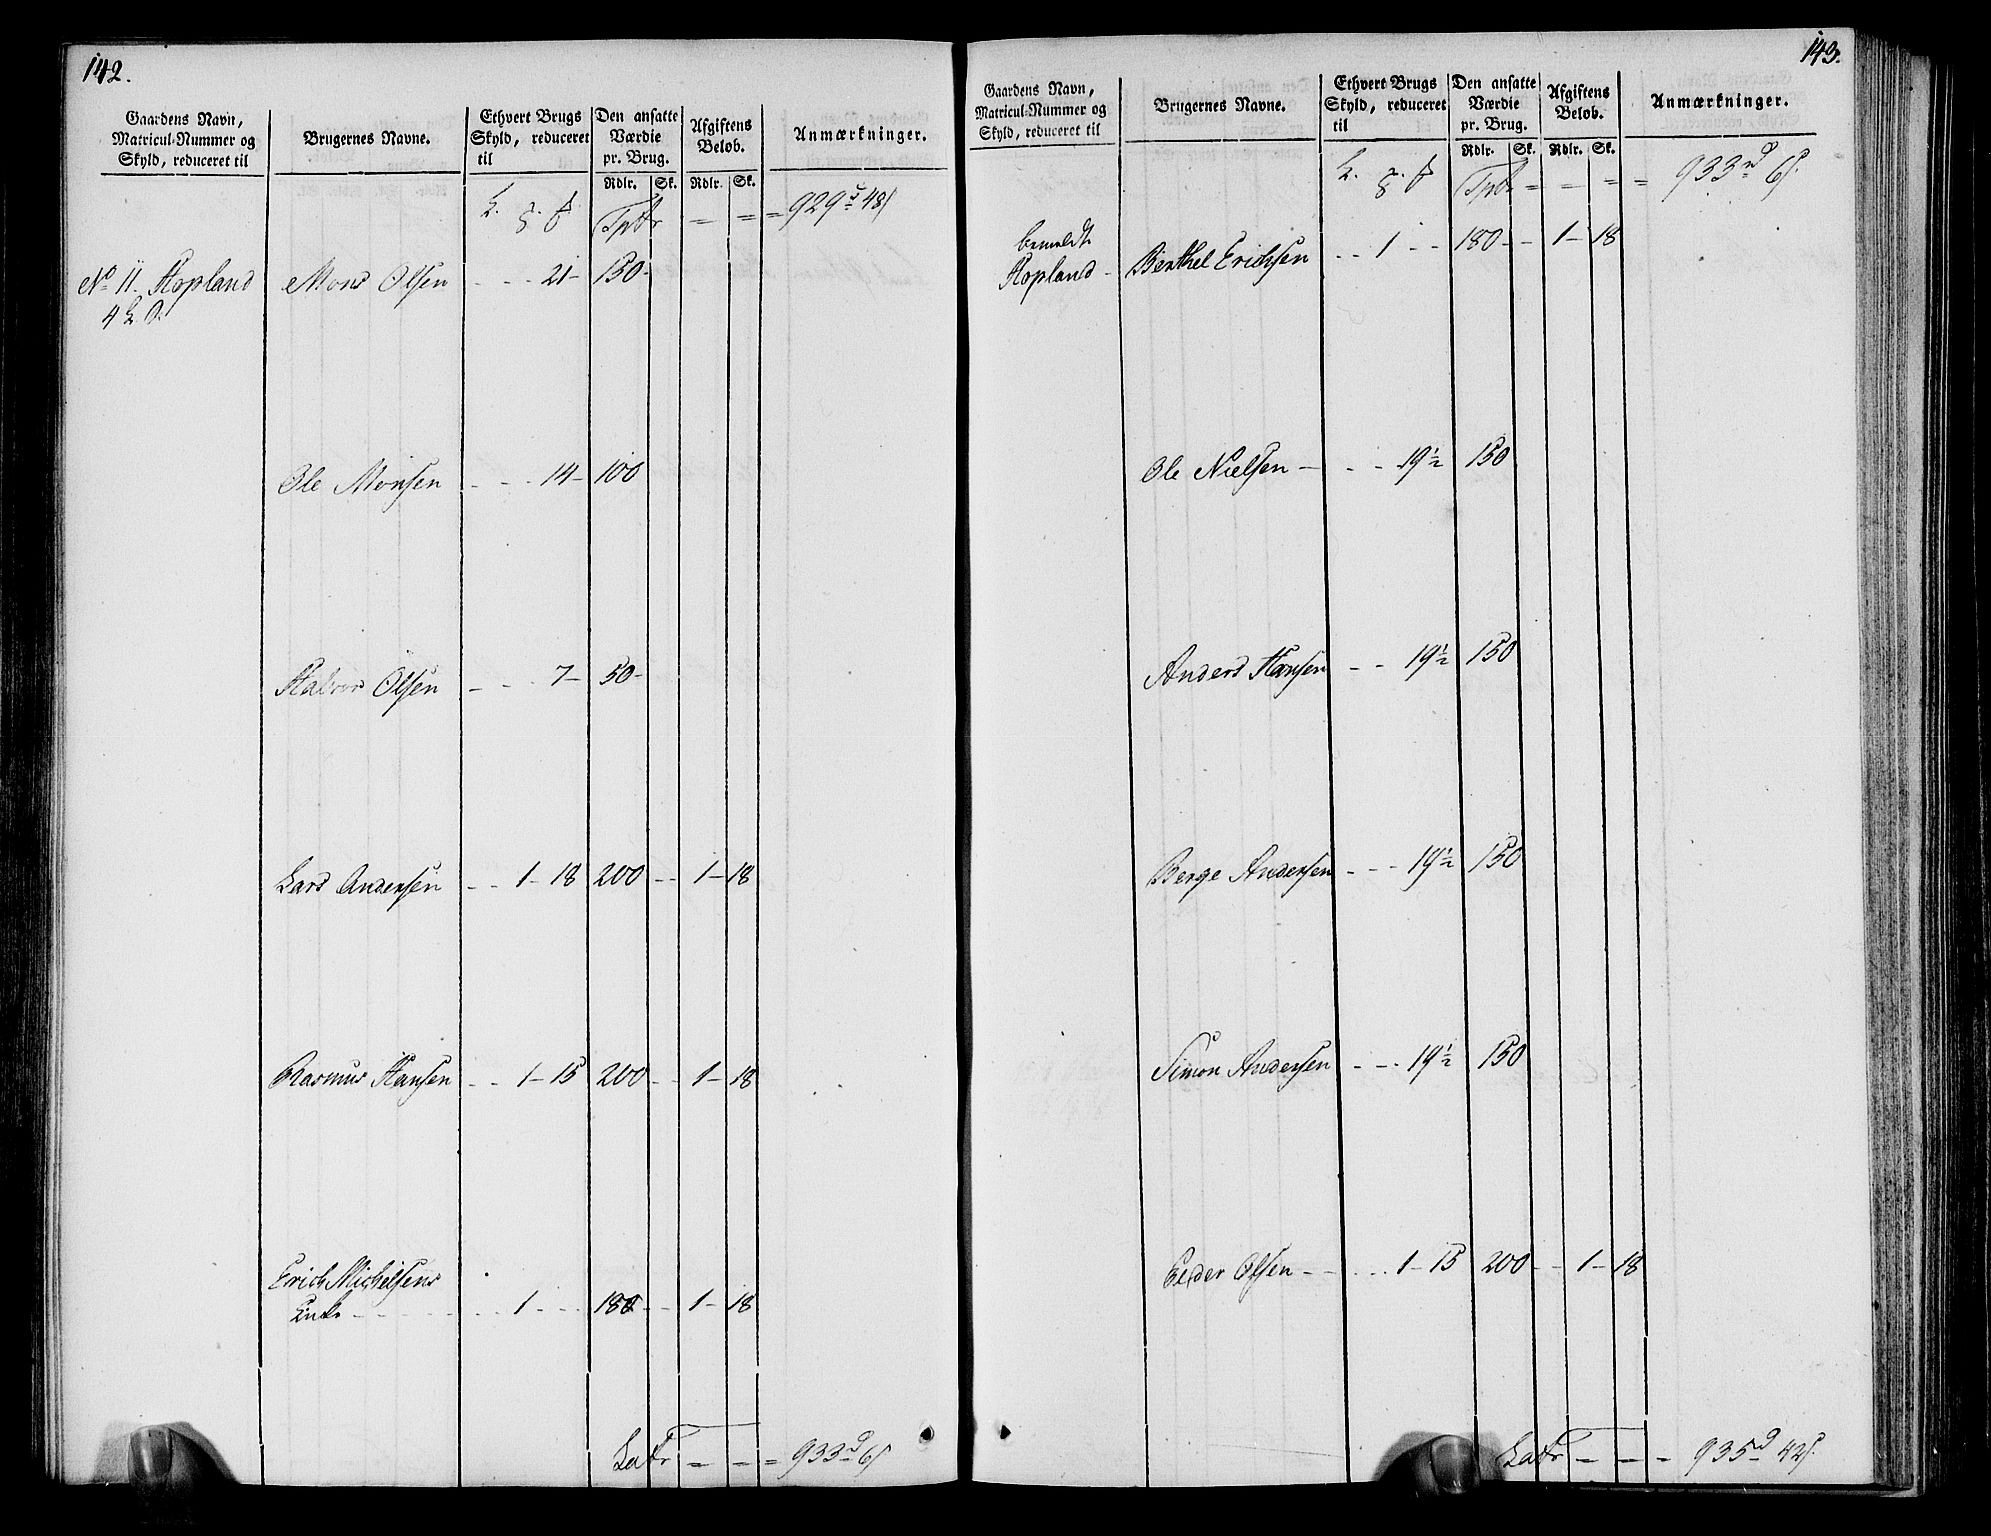 142.
Gaardens Navn, Matricul-Nummer og Skyld, reduceret til
Brugernes Navne.
Ethvert Brugs Skyld, reduceret til
Den ansatte Værdie pr. Brug.
Afgiftens Beløb.
Anmærkninger.
Rdlr. Sk. Rdlr. Sk.
Tptr = = = 929 48
No 11. Hopland Mons Olsen - - - 21 - 150 -
4
Ole Monsen - - - 14 - 100
Halvor Olsen - - - 7 - 50 -
Lars Andersen - - 1 - 18 200 - - 1 - 18
Rasmus Hansen - - 1 - 15 200 - - 1 - 18
Erich Michelsens
Enke - - - - - - 1 - - - 180 - - 1 - 18
Latr = = = 933 6
143.
Gaardens Navn, Matricul-Nummer og Skyld, reduceret til
Brugernes Navne.
Ethvert Brugs Skyld, reduceret til
Den ansatte Værdie pr. Brug.
Afgiftens Beløb.
Anmærkninger.
Rdlr. Sk. Rdlr. Sk.
Tptr = = = = 933 6
bemeldt
Hopland - Berthel Erichsen - - 1 - - 180 - - 1 - 18
Ole Nielsen - - - 19 ½ 150
Anders Hansen - - 19 ½ 150
Berge Andersen - - - 19 ½ 150
Simon Andersen - - - 19 ½ 150
Peder Olsen - - - - - 1 - 15 200 - - 1 - 18
Latr = = = 935 42